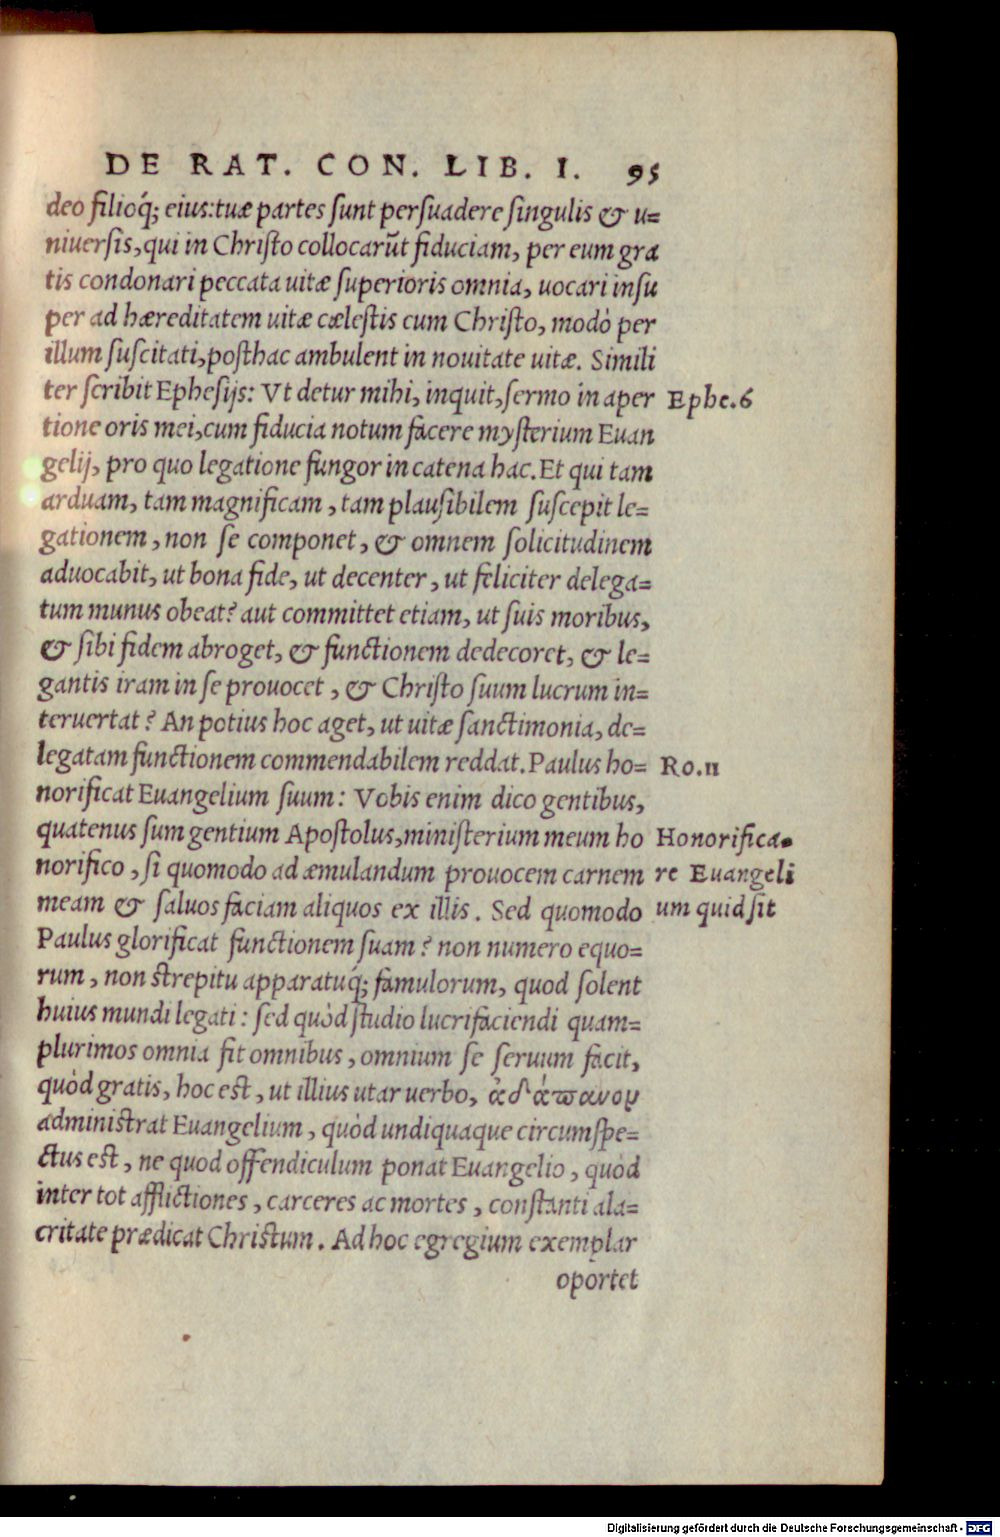 DE RAT. CON. LIB. I. 95
deo filioq́; eius: tuæ partes sunt persuadere singulis & u=
niuersis, qui in Christo collocarũt fiduciam, per eum gra
tis condonari peccata uitæ superioris omnia, uocari insu
per ad hæreditatem uitæ cælestis cum Christo, modò per
illum suscitati, posthac ambulent in nouitate uitæ. Simili
ter scribit Ephesijs: Vt detur mihi, inquit, sermo in aper
Ephe. 6
tione oris mei, cum fiducia notum facere mysterium Euan
gelij, pro quo legatione fungor in catena hac. Et qui tam
arduam, tam magnificam, tam plausibilem suscepit le=
gationem, non se componet, & omnem solicitudinem
aduocabit, ut bona fide, ut decenter, ut feliciter delega=
tum munus obeat? aut committet etiam, ut suis moribus,
& sibi fidem abroget, & functionem dedecoret, & le=
gantis iram in se prouocet, & Christo suum lucrum in=
teruertat? An potius hoc aget, ut uitæ sanctimonia, de=
legatam functionem commendabilem reddat. Paulus ho=
Ro. 11
norificat Euangelium suum: Vobis enim dico gentibus,
quatenus sum gentium Apostolus, ministerium meum ho
Honorifica=
norifico, si quomodo ad æmulandum prouocem carnem
re Euangeli
meam & saluos faciam aliquos ex illis. Sed quomodo
um quid sit
Paulus glorificat functionem suam? non numero equo=
rum, non strepitu apparatuq́; famulorum, quod solent
huius mundi legati: sed quòd studio lucrifaciendi quam=
plurimos omnia fit omnibus, omnium se seruum facit,
quòd gratis, hoc est, ut illius utar uerbo, ἀδάπανου
administrat Euangelium, quòd undiquaque circumspe=
ctus est, ne quod offendiculum ponat Euangelio, quòd
inter tot afflictiones, carceres ac mortes, constanti ala=
critate prædicat Christum. Ad hoc egregium exemplar
oportet
Digitalisierung gefördert durch die Deutsche Forschungsgemeinschaft - DFG